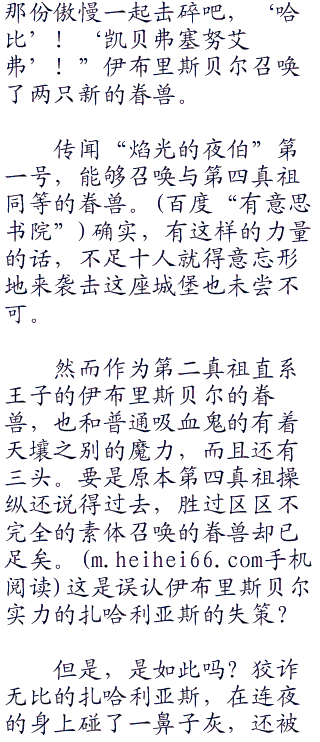 那份傲慢一起击碎吧，‘哈
比’！‘凯贝弗塞努艾
弗’！”伊布里斯贝尔召唤
了两只新的眷兽。
传闻“焰光的夜伯”第
一号，能够召唤与第四真祖
同等的眷兽。(百度“有意思
书院”)确实，有这样的力量
的话，不足十人就得意忘形
地来袭击这座城堡也未尝不
可。
然而作为第二真祖直系
王子的伊布里斯贝尔的眷
兽，也和普通吸血鬼的有着
天壤之别的魔力，而且还有
三头。要是原本第四真祖操
纵还说得过去，胜过区区不
完全的素体召唤的眷兽却已
足矣。(m.heihei66.com手机
阅读)这是误认伊布里斯贝尔
实力的扎哈利亚斯的失策？
但是，是如此吗？狡诈
无比的扎哈利亚斯，在连夜
的身上碰了一鼻子灰，还被